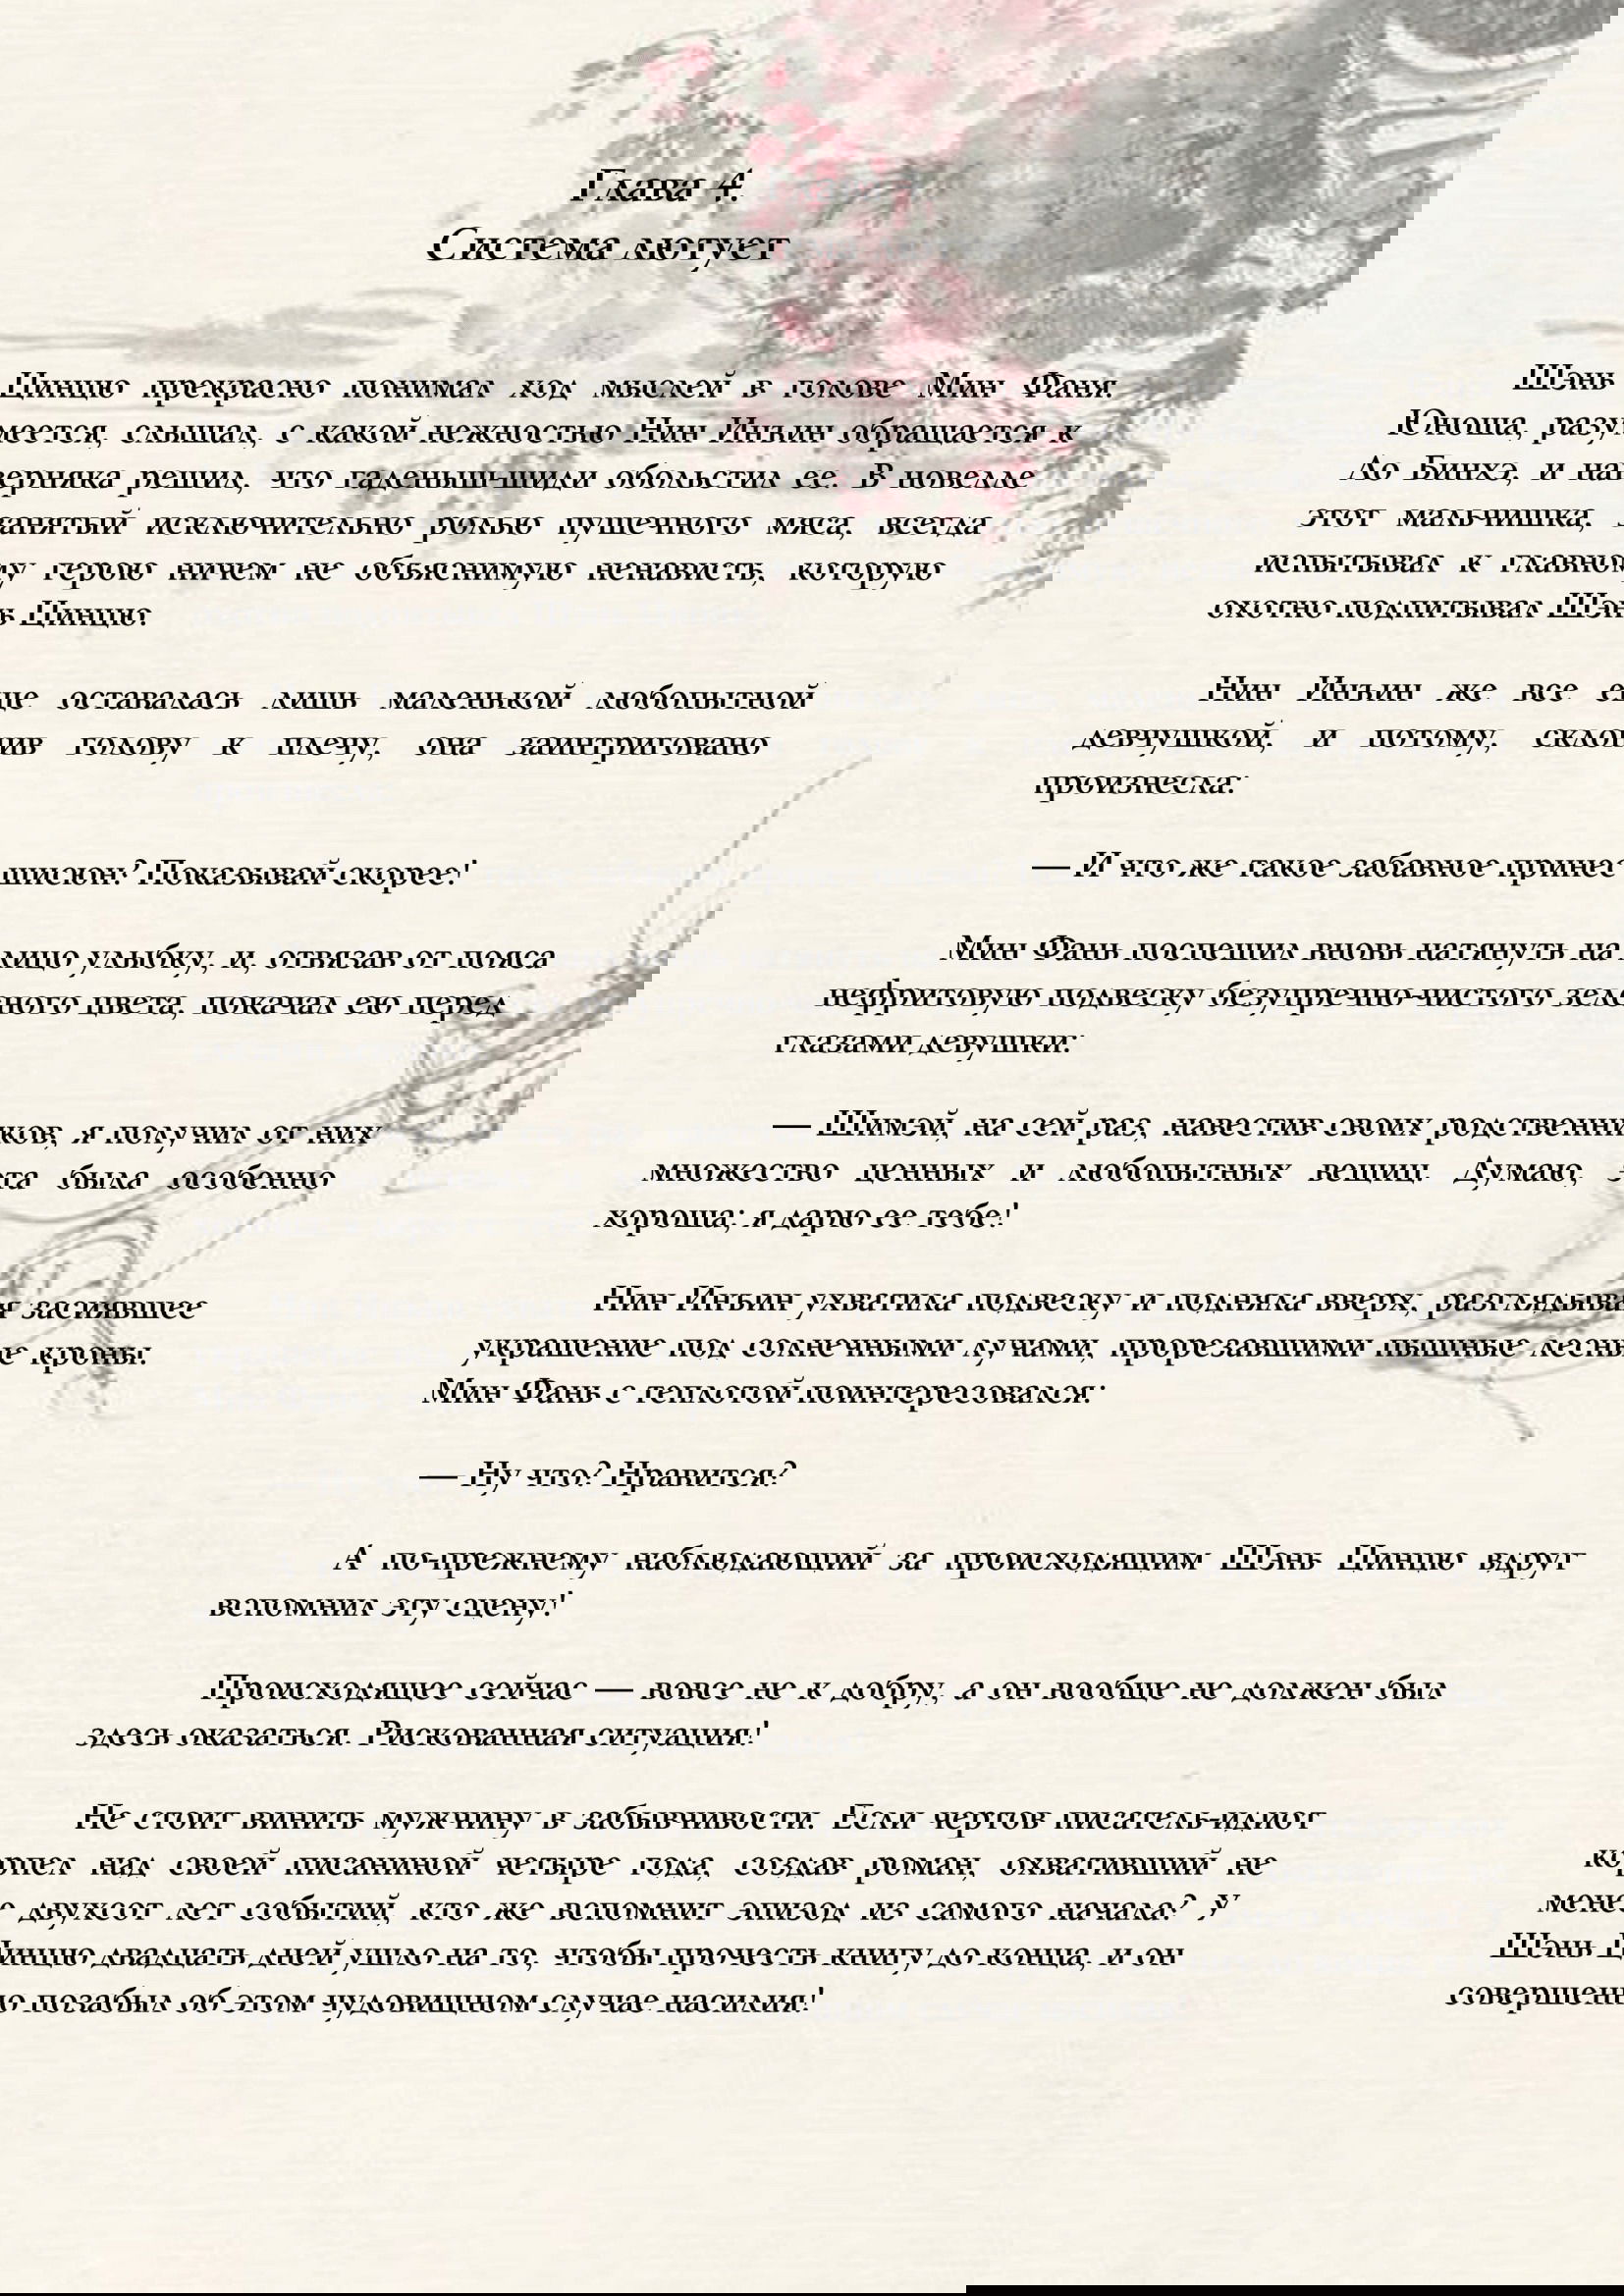 Глава 4.
Система лютует
Шэнь Цинцю прекрасно понимал ход мыслей в голове Мин Фаня.
Юноша, разумеется, слышал, с какой нежностью Нин Инъин обращается к
Ло Бинхэ, и наверняка решил, что гаденыш-шиди обольстил ее. В новелле
этот мальчишка, занятый исключительно ролью пушечного мяса, всегда
испытывал к главному герою ничем не объяснимую ненависть, которую
охотно подпитывал Шэнь Цинцю.
Нин Инъин же все еще оставалась лишь маленькой любопытной
девчушкой, и потому, склонив голову к плечу, она заинтриговано
произнесла:
— И что же такое забавное принес шисюн? Показывай скорее!
Мин Фань поспешил вновь натянуть на лицо улыбку, и, отвязав от пояса
нефритовую подвеску безупречно-чистого зеленого цвета, покачал ею перед
глазами девушки:
— Шимэй, на сей раз, навестив своих родственников, я получил от них
множество ценных и любопытных вещиц. Думаю, эта была особенно
хороша; я дарю ее тебе!
Нин Инъин ухватила подвеску и подняла вверх, разглядывая засиявшее
украшение под солнечными лучами, прорезавшими пышные лесные кроны.
Мин Фань с теплотой поинтересовался:
— Ну что? Нравится?
А по-прежнему наблюдающий за происходящим Шэнь Цинцю вдруг
вспомнил эту сцену!
Происходящее сейчас — вовсе не к добру, а он вообще не должен был
здесь оказаться. Рискованная ситуация!
Не стоит винить мужчину в забывчивости. Если чертов писатель-идиот
корпел над своей писаниной четыре года, создав роман, охвативший не
менее двухсот лет событий, кто же вспомнит эпизод из самого начала? У
Шэнь Цинцю двадцать дней ушло на то, чтобы прочесть книгу до конца, и он
совершенно позабыл об этом чудовищном случае насилия!